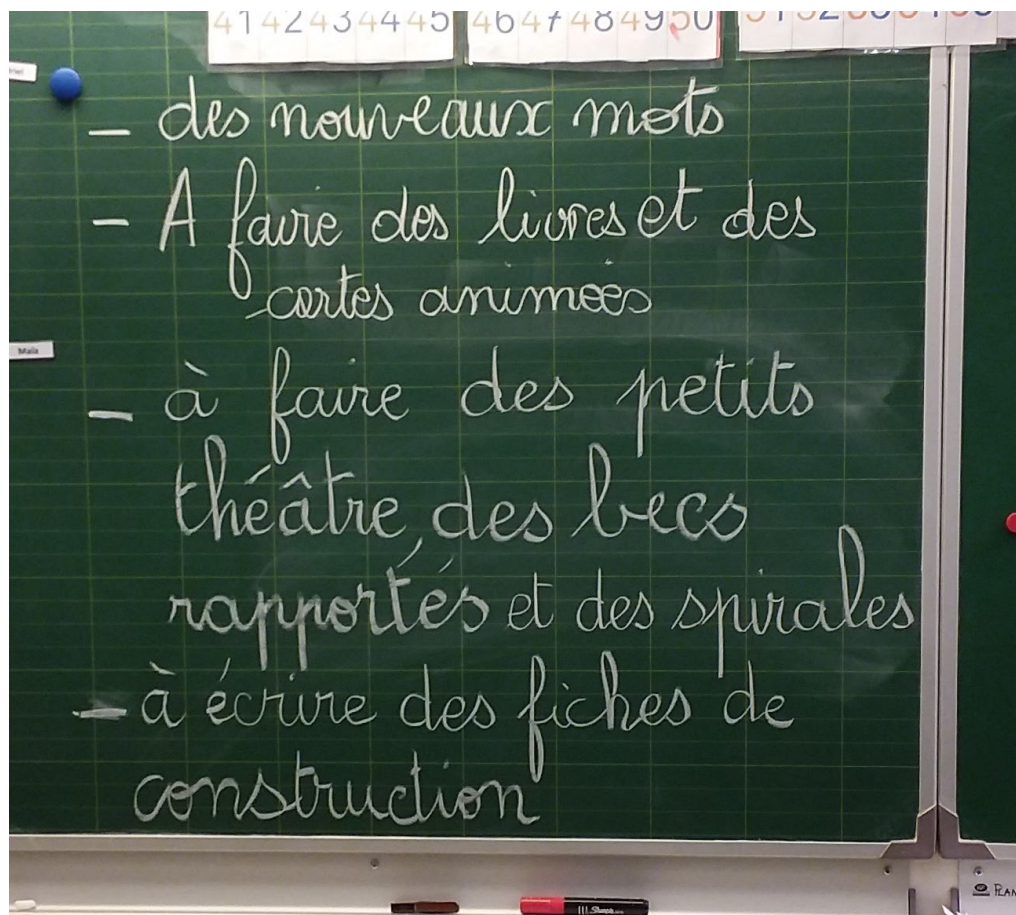 41 42 43 44 45 46 47 48 49 50
- des nouveaux mots
- A faire des livres et des
cartes animées
Maïa
- à faire des petits
théâtre, des becs
rapportés et des spirales
- à écrire des fiches de
construction
Sharpie